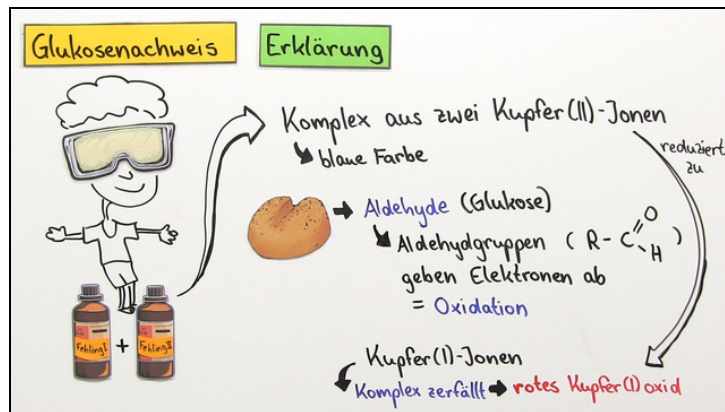 Glukosenachweis
Erklärung
Komplex aus zwei Kupfer(II)-Jonen
blaue Farbe
reduziert
zu
Aldehyde (Glukose)
Aldehydgruppen (R-C
O
H
)
geben Elektronen ab
= Oxidation
Fehling I + Fehling II
Kupfer(I)-Jonen
Komplex zerfällt → rotes Kupfer(I)oxid